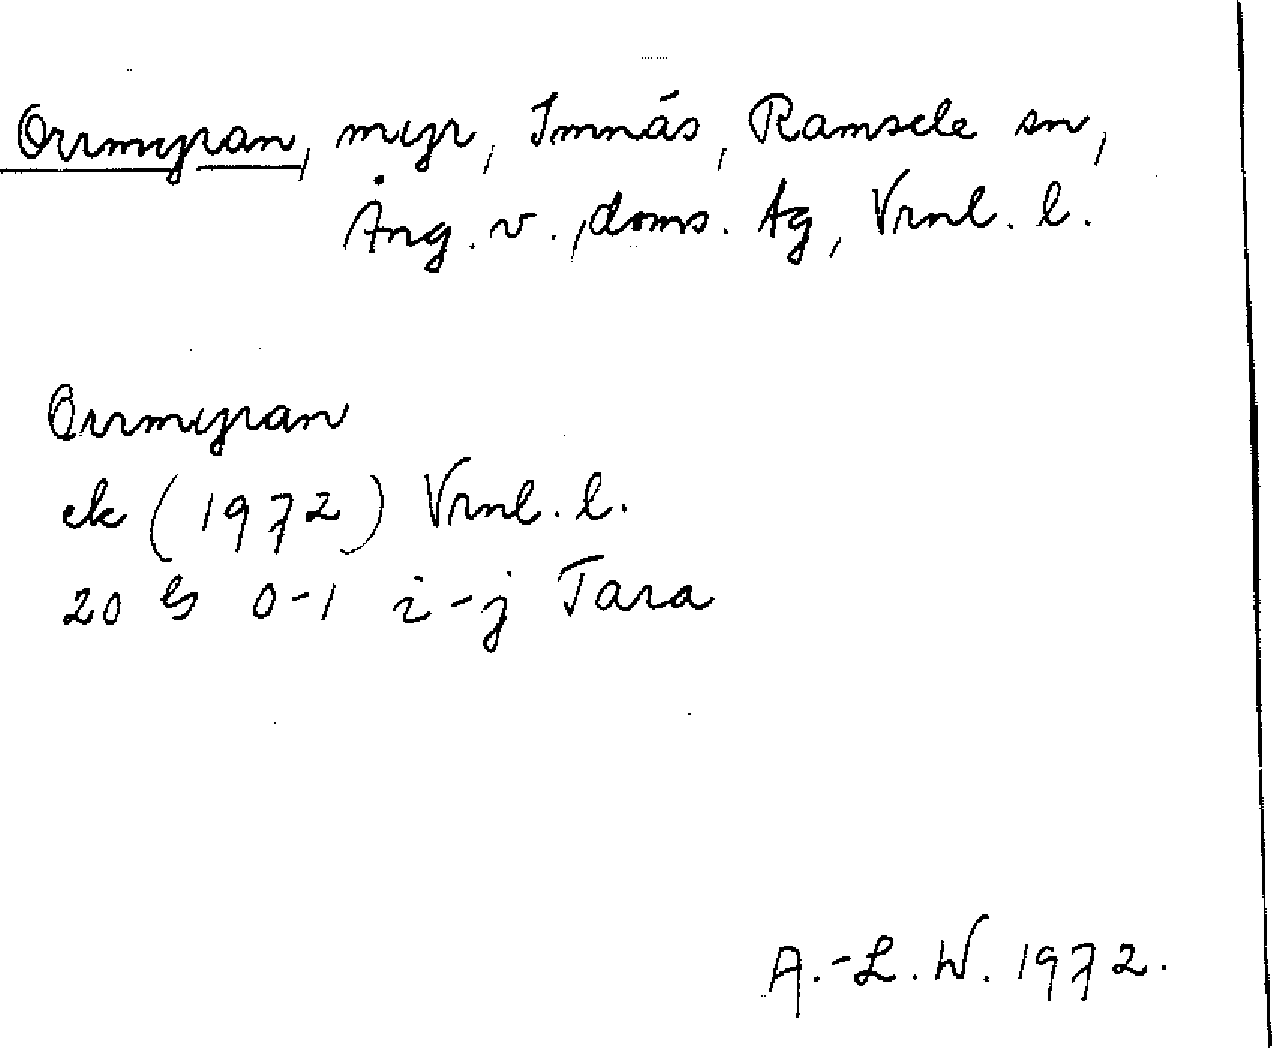 Orrmyran, myr, Imnäs, Ramsele sn,
Ång. v., doms. Ag, Vrnl. l.
Orrmyran
ek (1972) Vrnl. l.
20 G 0-1 i-j Tara
A.-L. W. 1972.